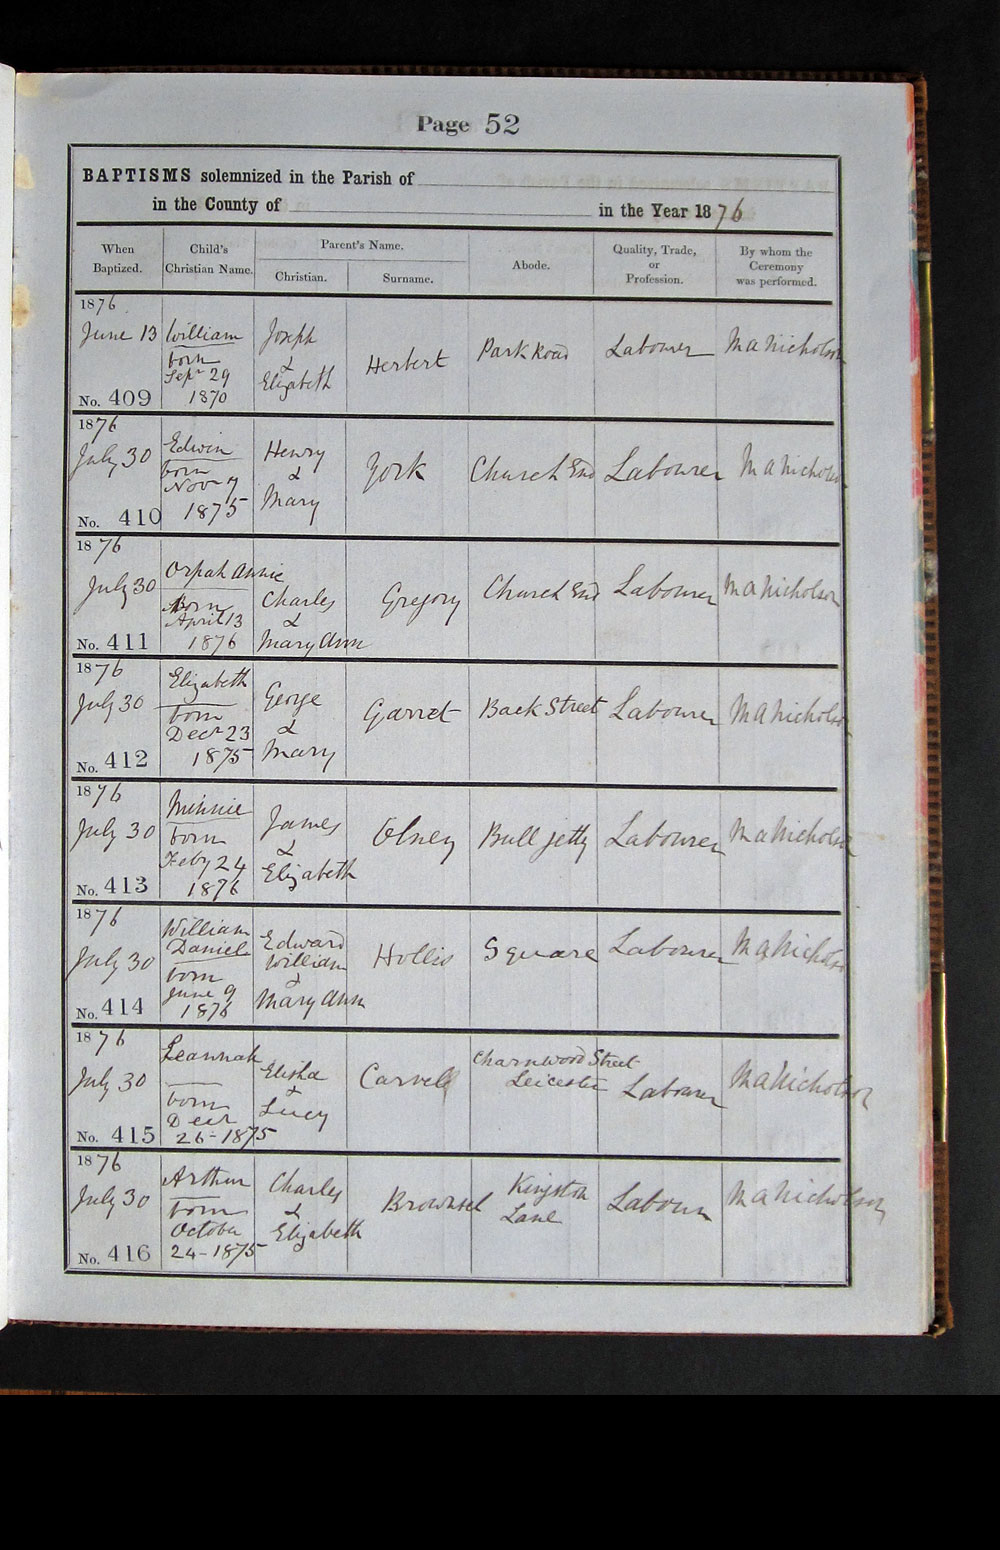 Page 52
BAPTISMS solemnized in the Parish of
in the County of in the Year 1876
When Baptized. Child's Christian Name. Parent's Name. Christian. Surname. Abode. Quality, Trade, or Profession. By whom the Ceremony was performed.
1876
June 13 William Joseph & Elizabeth Herbert Park Road Labourer M A Nicholson
born
Sepr 29
1870
No. 409
1876
July 30 Edwin Henry & Mary York Church End Labourer M A Nicholson
born
Nov 9
1875
No. 410
1876
July 30 Orpah Annie Charles & Mary Ann Gregory Church End Labourer M A Nicholson
Born
April 13
1876
No. 411
1876
July 30 Elizabeth George & Mary Garret Back Street Labourer M A Nicholson
born
Decr 23
1875
No. 412
1876
July 30 Minnie James & Elizabeth Olney Bull jetty Labourer M A Nicholson
born
Feby 24
1876
No. 413
1876
July 30 William Daniel Edward William & Mary Ann Hollis Square Labourer M A Nicholson
born
June 9
1876
No. 414
1876
July 30 Leannah Elisha & Lucy Carvell Charnwood Street Leicester Labourer M A Nicholson
born
Decr
26-1875
No. 415
1876
July 30 Arthur Charles & Elizabeth Brownsel Kingston Lane Labourer M A Nicholson
born
October
24-1875
No. 416